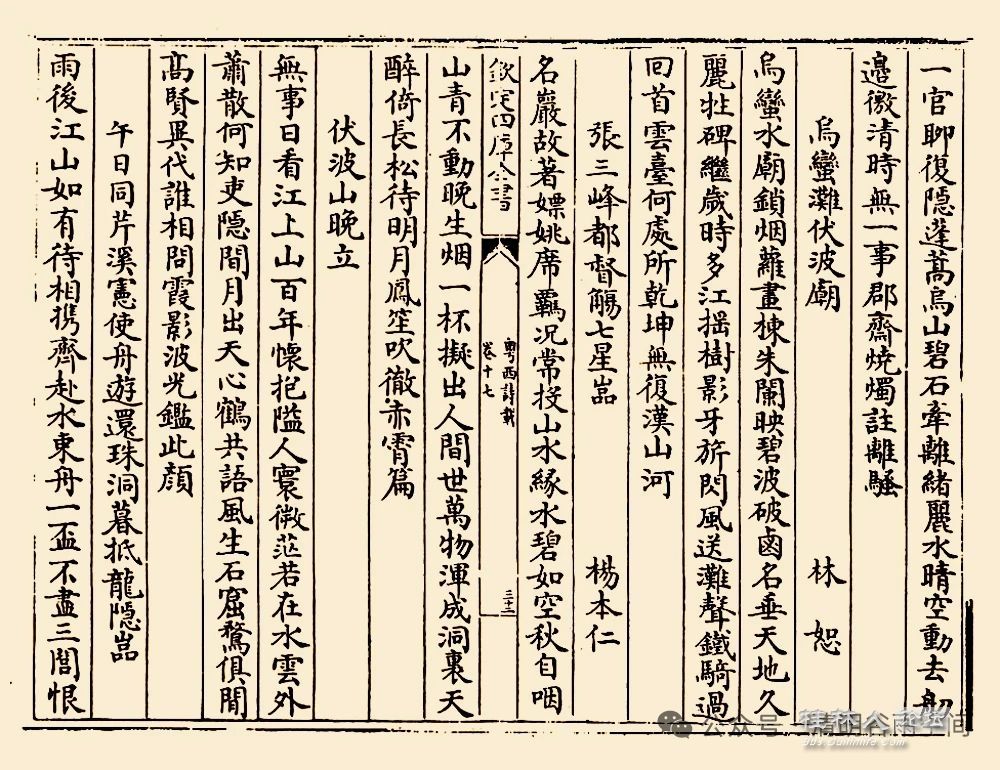 一官聊復隱蓬蒿烏山碧石牽離緒麗水晴空動去舠
邉徼清時無一事郡齋燒燭註離騷
烏蠻灘伏波廟 林恕
烏蠻水廟鎖烟蘿畫棟朱闌映碧波破鹵名垂天地久
麗牲碑繼歲時多江揺樹影牙旂閃風送灘聲鐵騎過
回首雲臺何處所乾坤無復漢山河
張三峰都督觴七星嵓 楊本仁
名巖故著嫖姚席羈况常投山水緣水碧如空秋自咽
欽定四庫全書
粤西詩載
卷十七
三十二
山青不動晚生烟一杯擬出人間世萬物渾成洞裏天
醉倚長松待明月鳳笙吹徹赤霄篇
伏波山晚立
無事日看江上山百年懷抱隘人寰微茫若在水雲外
蕭散何知吏隱間月出天心鶴共語風生石窟鷺俱閒
髙賢異代誰相問霞影波光鑑此顔
午日同芹溪憲使舟遊還珠洞暮抵龍隱嵓
雨後江山如有待相携齊赴水東舟一盃不盡三閭恨
公众号